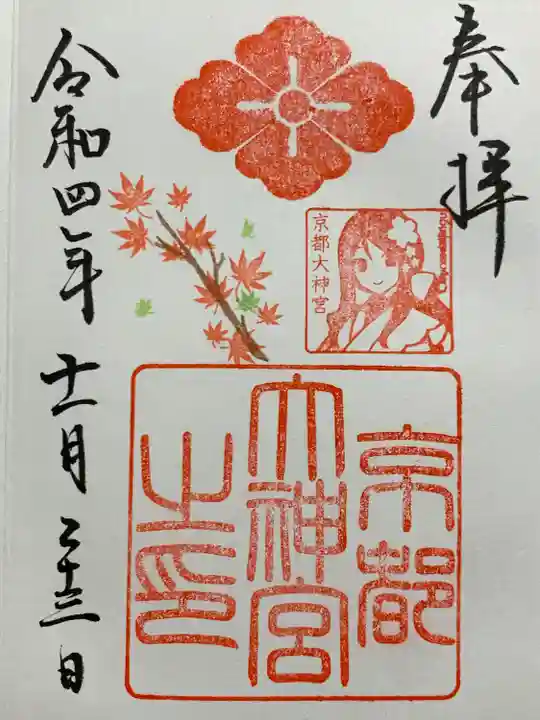 奉拝
京都大神宮
京都
大神宮
之印
令和四年十一月二十三日